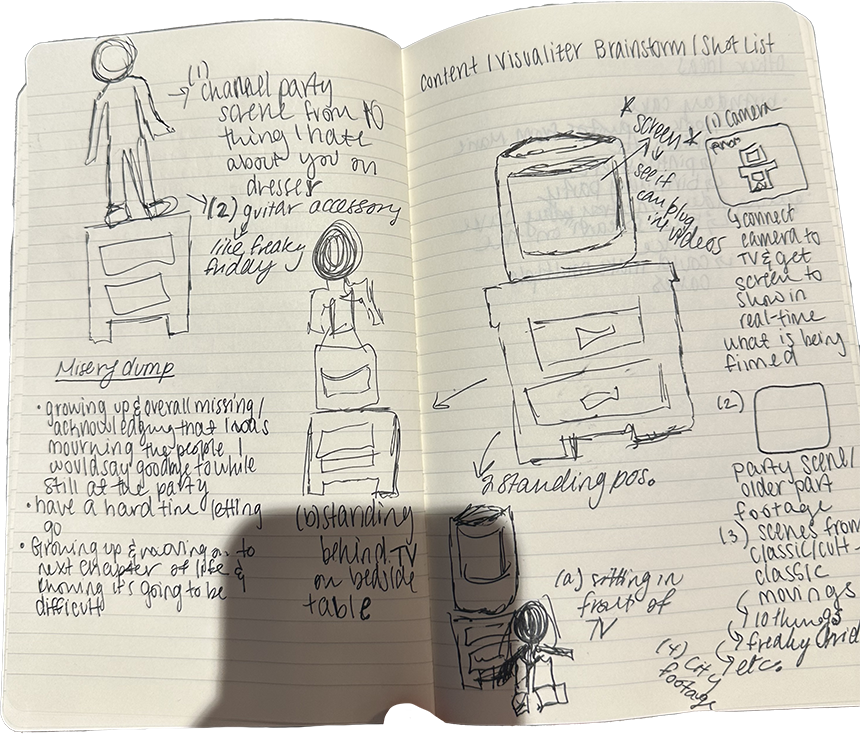 (1)
channel party
scene from 10
thing I hate
about you on
dresser
(2) guitar accessory
like freaky
friday
Misery dump
• growing up & overall missing/
acknowledging that I was
mourning the people I
would say goodbye to while
still at the party
• have a hard time letting
go
• Growing up & moving on to
next chapter of life &
knowing it's going to be
difficult
(b) standing
behind TV
on bedside
table
Content / Visualizer Brainstorm / Shot List
* screen *
see if
can plug
in videos
2 standing pos.
(a) sitting in
front of
TV
(1) camera
↳ connect
camera to
TV & get
screen to
show in
real-time
what is being
filmed
(2)
party scene/
older part
footage
(3) scenes from
classic/cult-
classic
movings
10 things
freaky frid
etc.
(4) City
footage